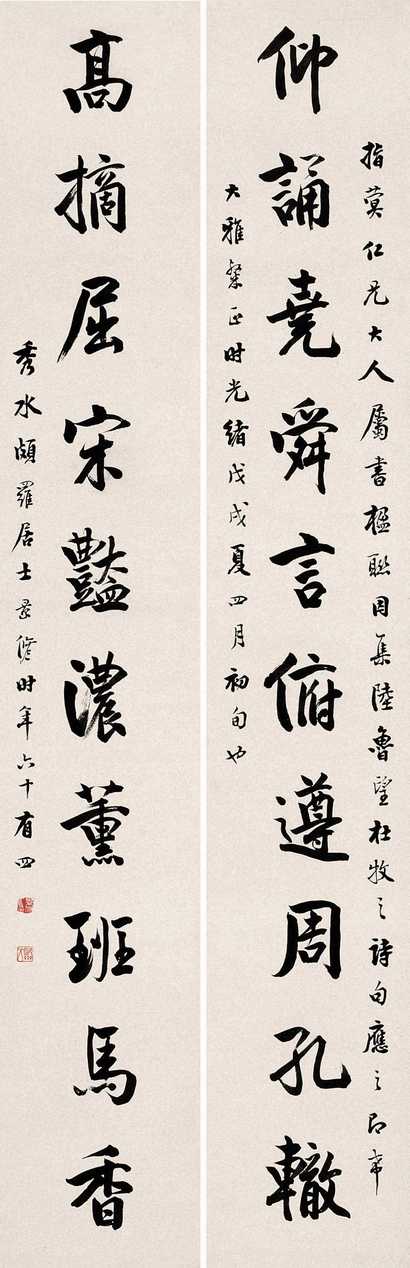 指蓂仁兄大人屬書楹聯因集陸魯望杜牧之詩句應之即希
仰誦堯舜言俯遵周孔轍
大雅粲正時光緒戊戌夏四月初旬也
高摘屈宋豔濃薰班馬香
秀水頗羅居士景修時年六十有四